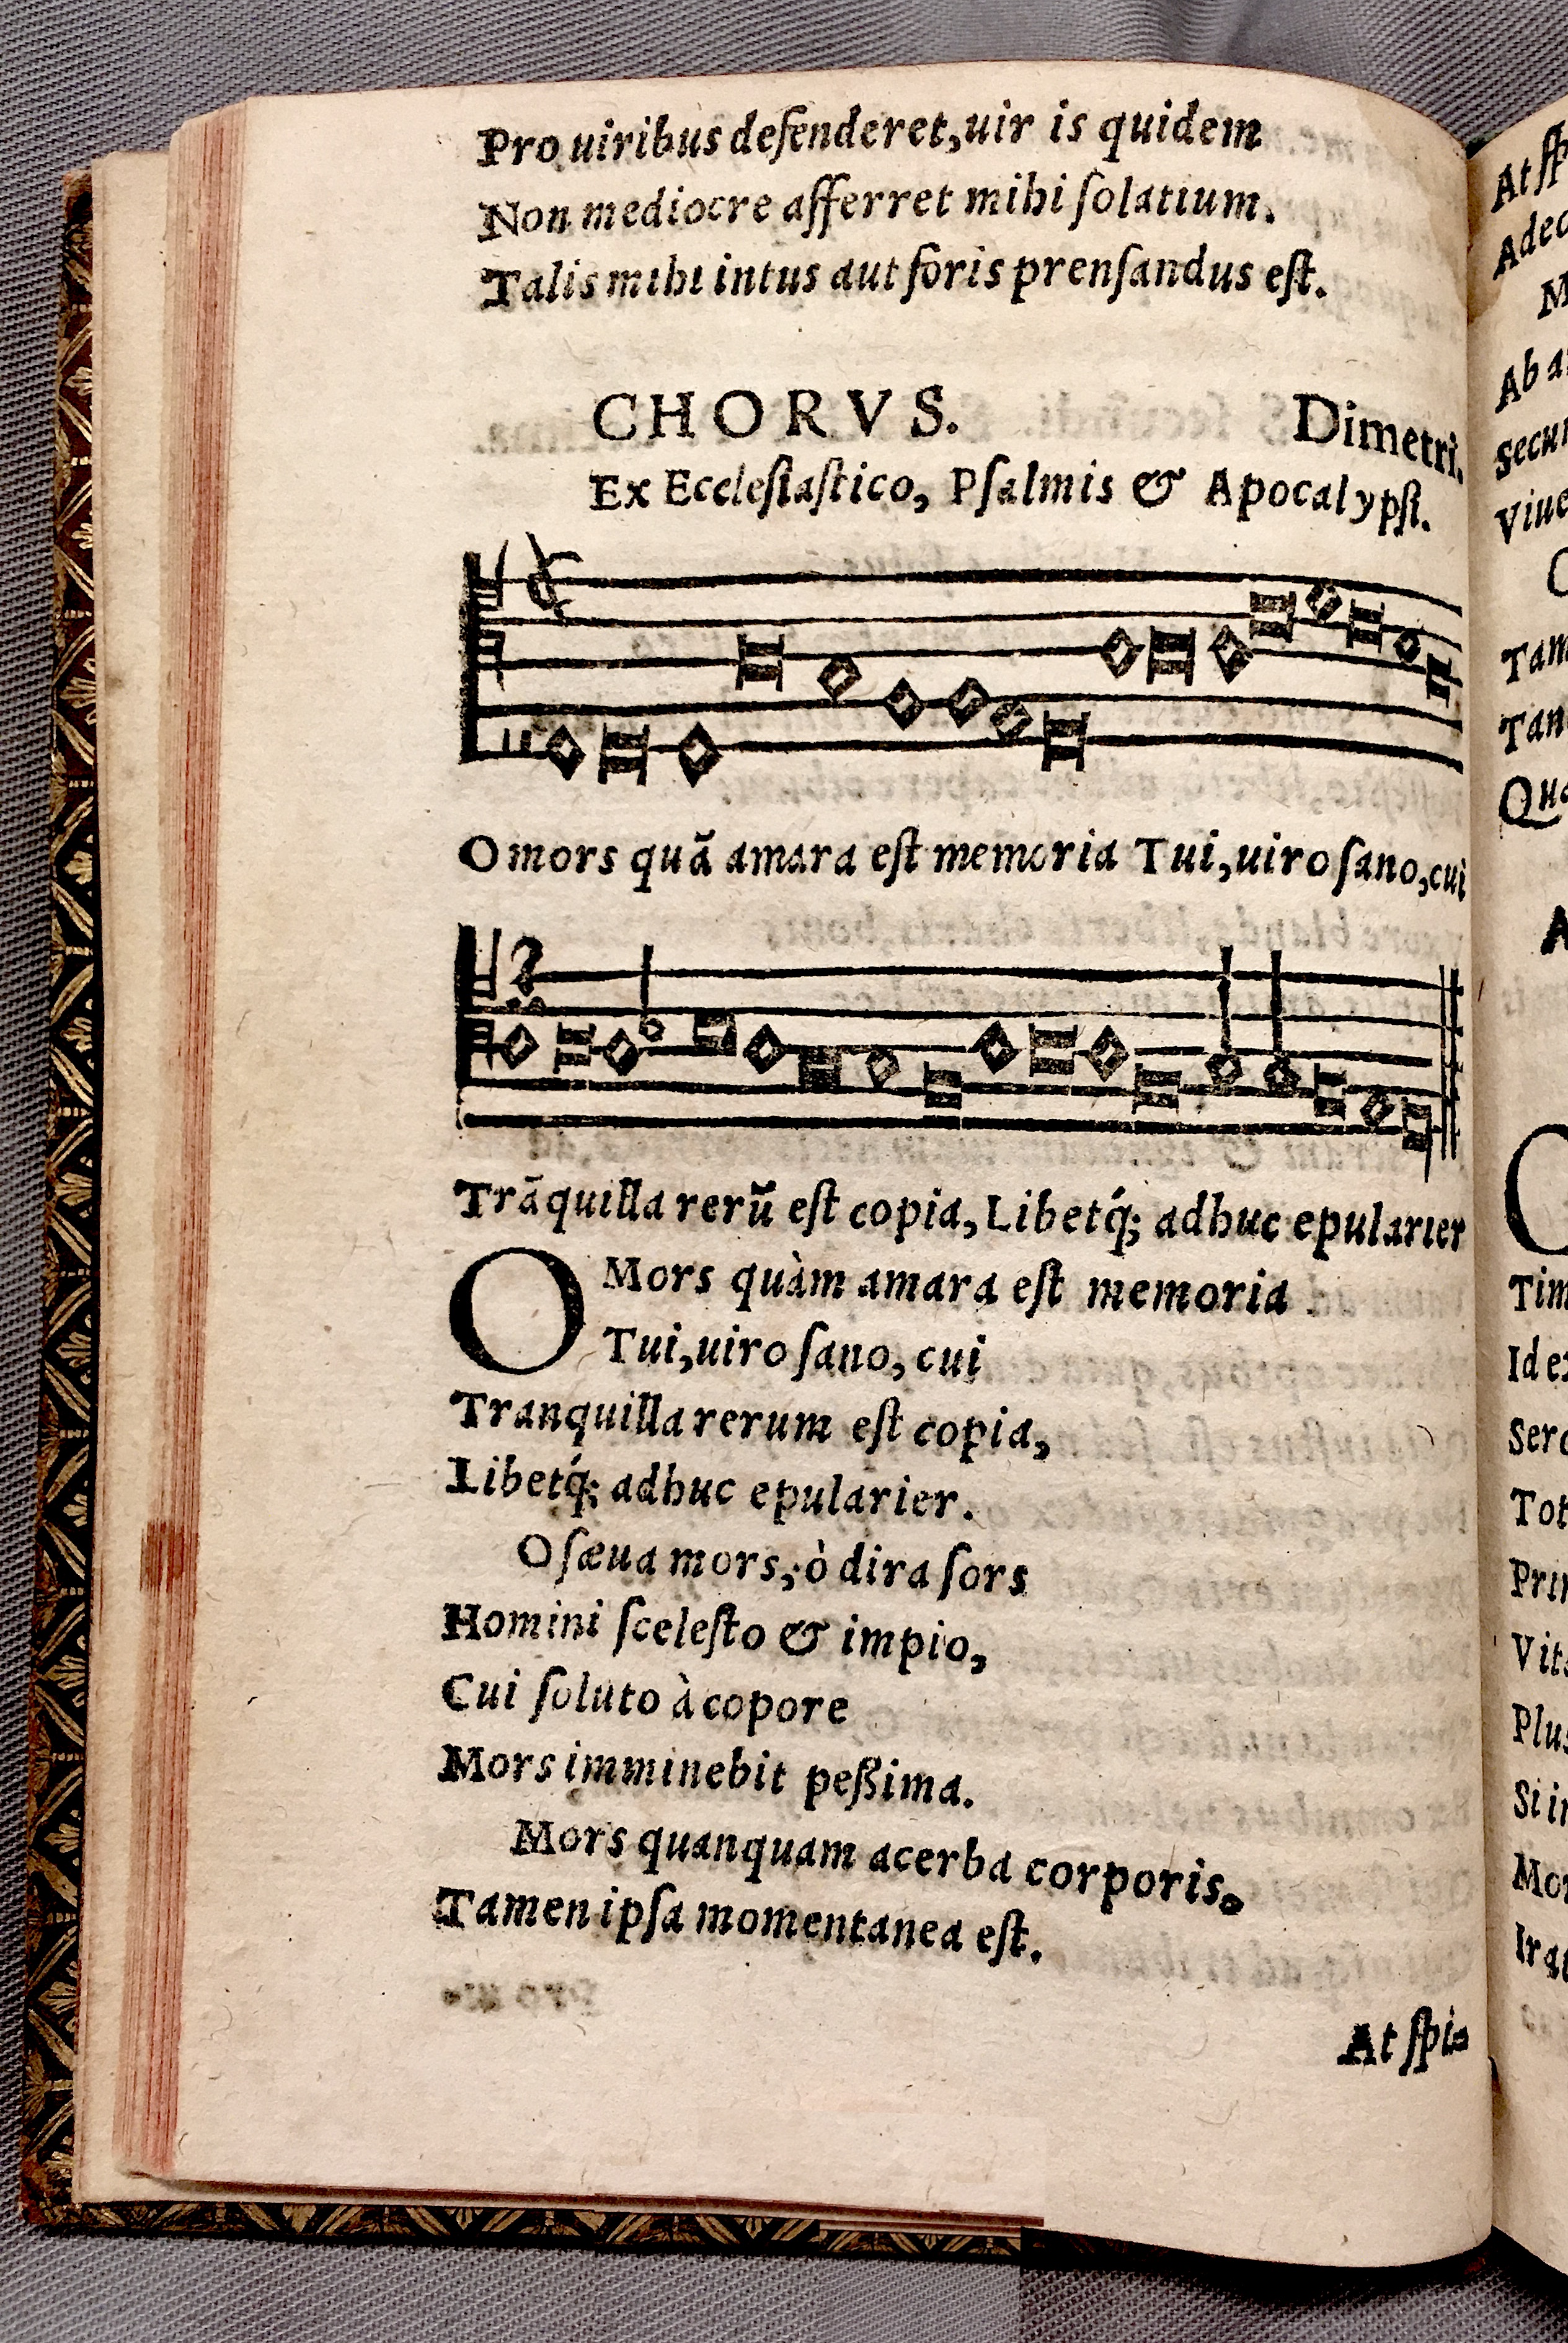 Pro uiribus defenderet,uir is quidem
Non mediocre afferret mihi ſolatium.
Talis mihi intus aut foris prenſandus eſt.
CHORVS. Dimetri.
Ex Eccleſiaſtico, Pſalmis & Apocalypſi.
O mors quã amara eſt memoria Tui,uiro ſano,cui
Trãquilla rerũ eſt copia, Libetq́; adhuc epularier
O Mors quàm amara eſt memoria
Tui,uiro ſano, cui
Tranquilla rerum eſt copia,
Libetq́; adhuc epularier.
O ſæua mors, ò dira ſors
Homini ſceleſto & impio,
Cui ſoluto à copore
Mors imminebit peßima.
Mors quanquam acerba corporis.
Tamen ipſa momentanea eſt.
At ſpi-
At ſp
Adeo
M
Ab a
Secun
Viue
C
Tam
Tan
Qua
A
C
Tim
Id e
Sero
Tot
Prin
Vit
Plus
Si i
Mor
Irat